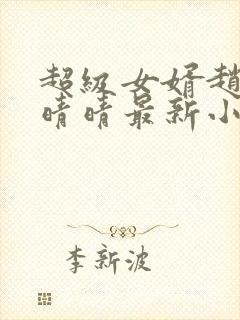 超级女婿赵
晴晴最新小
李新波